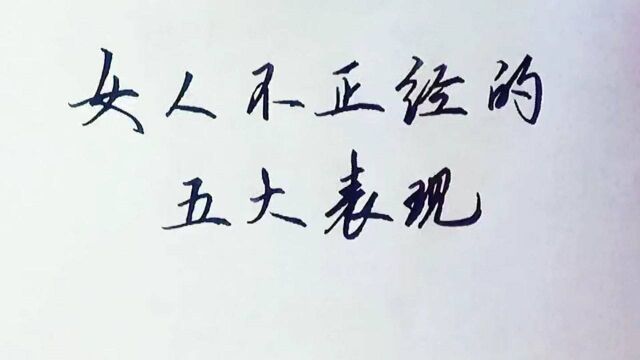 女人不正经的
五大表现